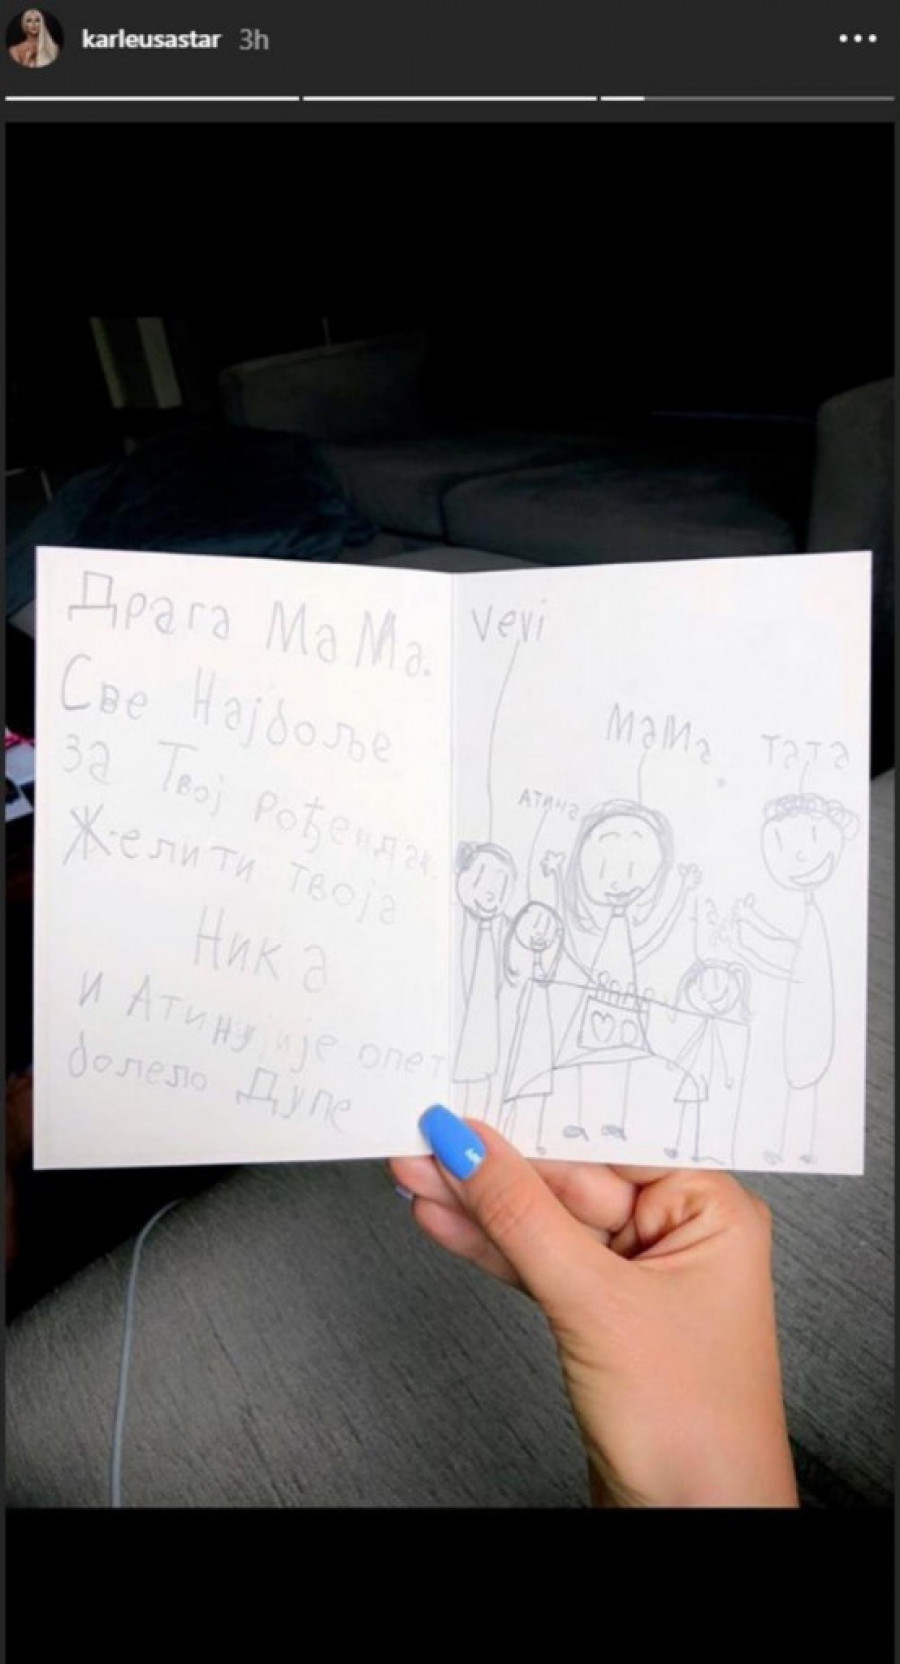 karleusastar 3h
Драга МаМа.
Све Најбоље
за Твој рођендан.
Желити твоја
Ника
и Атину је опет
болело Дупе
Vevi
МаМа
тата
Атина
ја